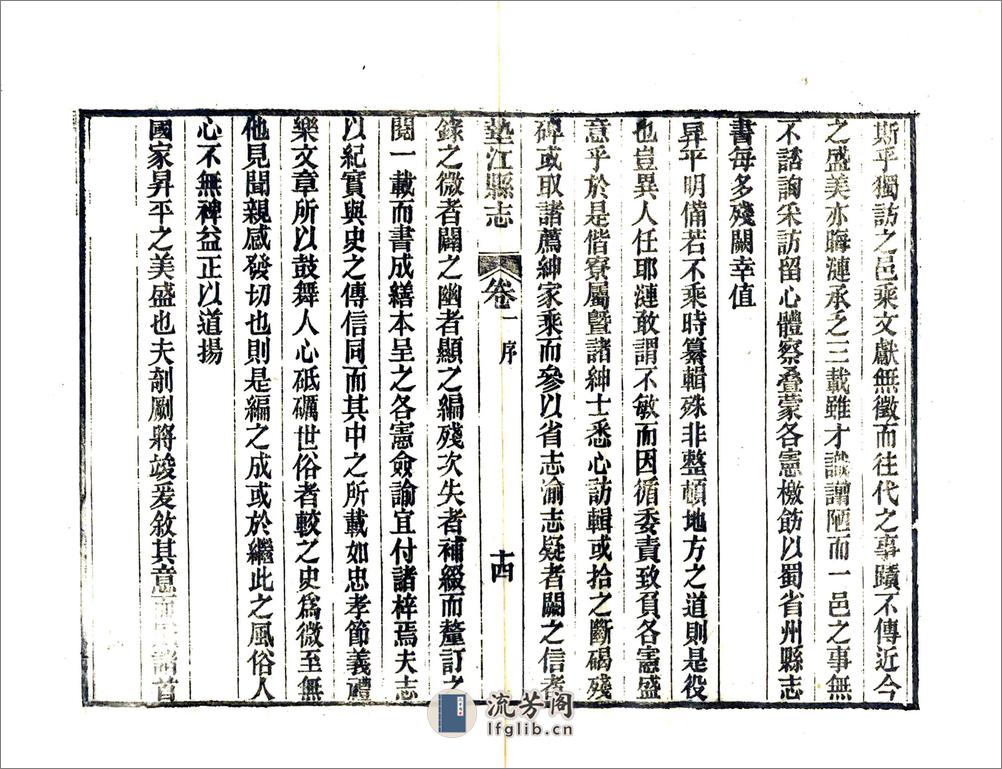 斯乎獨訪之邑乘文獻無徵而往代之事蹟不傳近今
之盛美亦晦漣承乏三載雖才識譾陋而一邑之事無
不諮詢采訪留心體察叠蒙各憲檄飭以蜀省州縣志
書每多殘闕幸值
昇平明備若不乘時纂輯殊非整頓地方之道則是役
也豈異人任耶漣敢謂不敏而因循委責致負各憲盛
意乎於是偕寮屬暨諸紳士悉心訪輯或拾之斷碣殘
碑或取諸薦紳家乘而參以省志渝志疑者闕之信者
墊江縣志 卷一 序 十四
錄之微者闡之幽者顯之編殘次失者補綴而釐訂之
閱一載而書成繕本呈之各憲僉諭宜付諸梓焉夫志
以紀實與史之傳信同而其中之所載如忠孝節義禮
樂文章所以鼓舞人心砥礪世俗者較之史爲微至無
他見聞親感發切也則是編之成或於繼此之風俗人
心不無裨益正以道揚
國家昇平之美盛也夫剞劂將竣爰敘其意而諸首
流芳阁
lfglib.cn